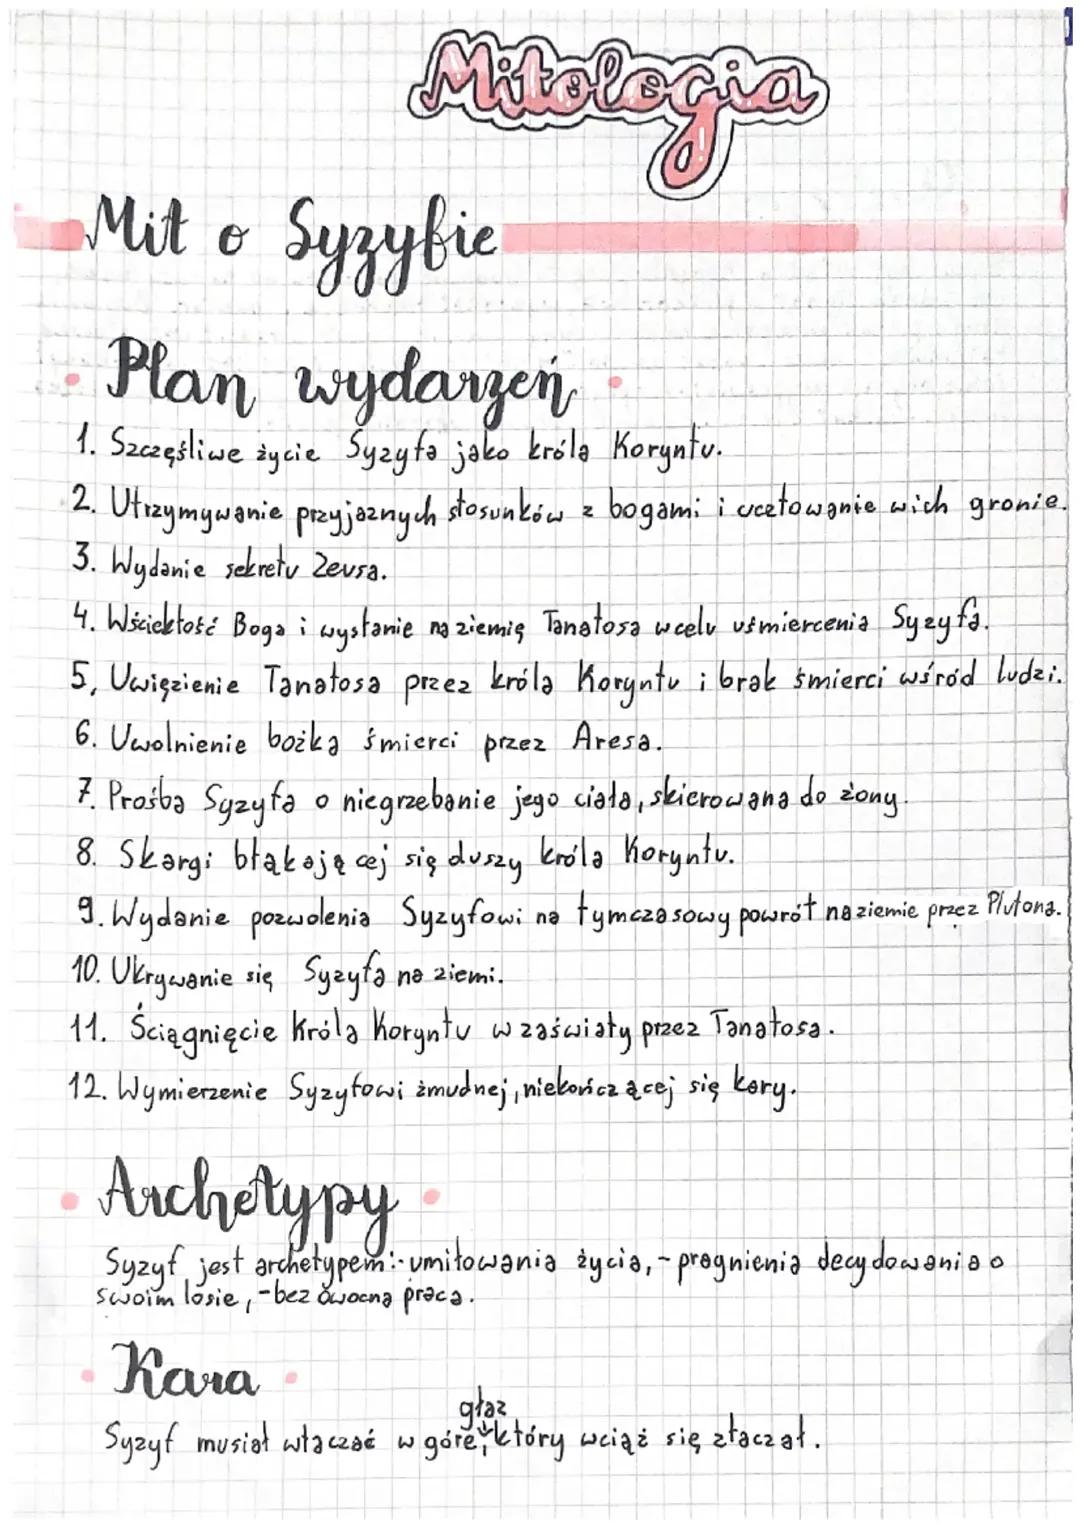 Mitologia
Mit o Syzyfie
Plan wydarzeń
1. Szczęśliwe życie Syzyfa jako króla Koryntu.
2. Utrzymywanie przyjaznych stosunków z bogami i ucztowanie w ich gronie.
3. Wydanie sekretu Zeusa.
4. Wściekłość Boga i wysłanie na ziemię Tanatosa w celu uśmiercenia Syzyfa.
5. Uwięzienie Tanatosa przez króla Koryntu i brak śmierci wśród ludzi.
6. Uwolnienie bożka śmierci przez Aresa.
7. Prośba Syzyfa o niegrzebanie jego ciała, skierowana do żony.
8. Skargi błąkającej się duszy króla Koryntu.
9. Wydanie pozwolenia Syzyfowi na tymczasowy powrót na ziemie przez Plutona.
10. Ukrywanie się Syzyfa na ziemi.
11. Ściągnięcie Króla Koryntu w zaświaty przez Tanatosa.
12. Wymierzenie Syzyfowi żmudnej, niekończącej się kary.
Archetypy
Syzyf jest archetypem: - umiłowania życia, - pragnienia decydowania o
swoim losie, - bez owocna praca.
Kara
głaz
Syzyf musiał wtaczać w górę, który wciąż się staczał.